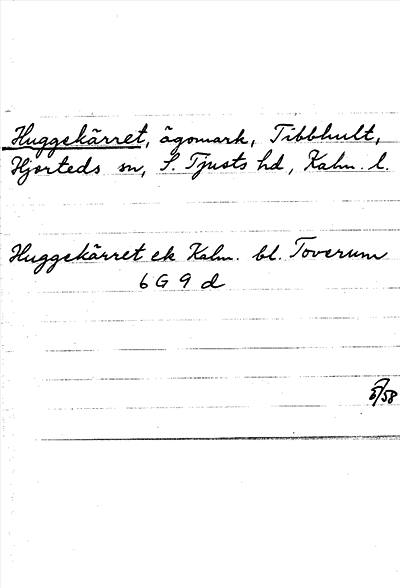 Huggekärret, ägomark, Tibbhult,
Hjorteds sn, S. Tjusts hd, Kalm. l.
Huggekärret ek Kalm. bl. Toverum
6 G 9 d